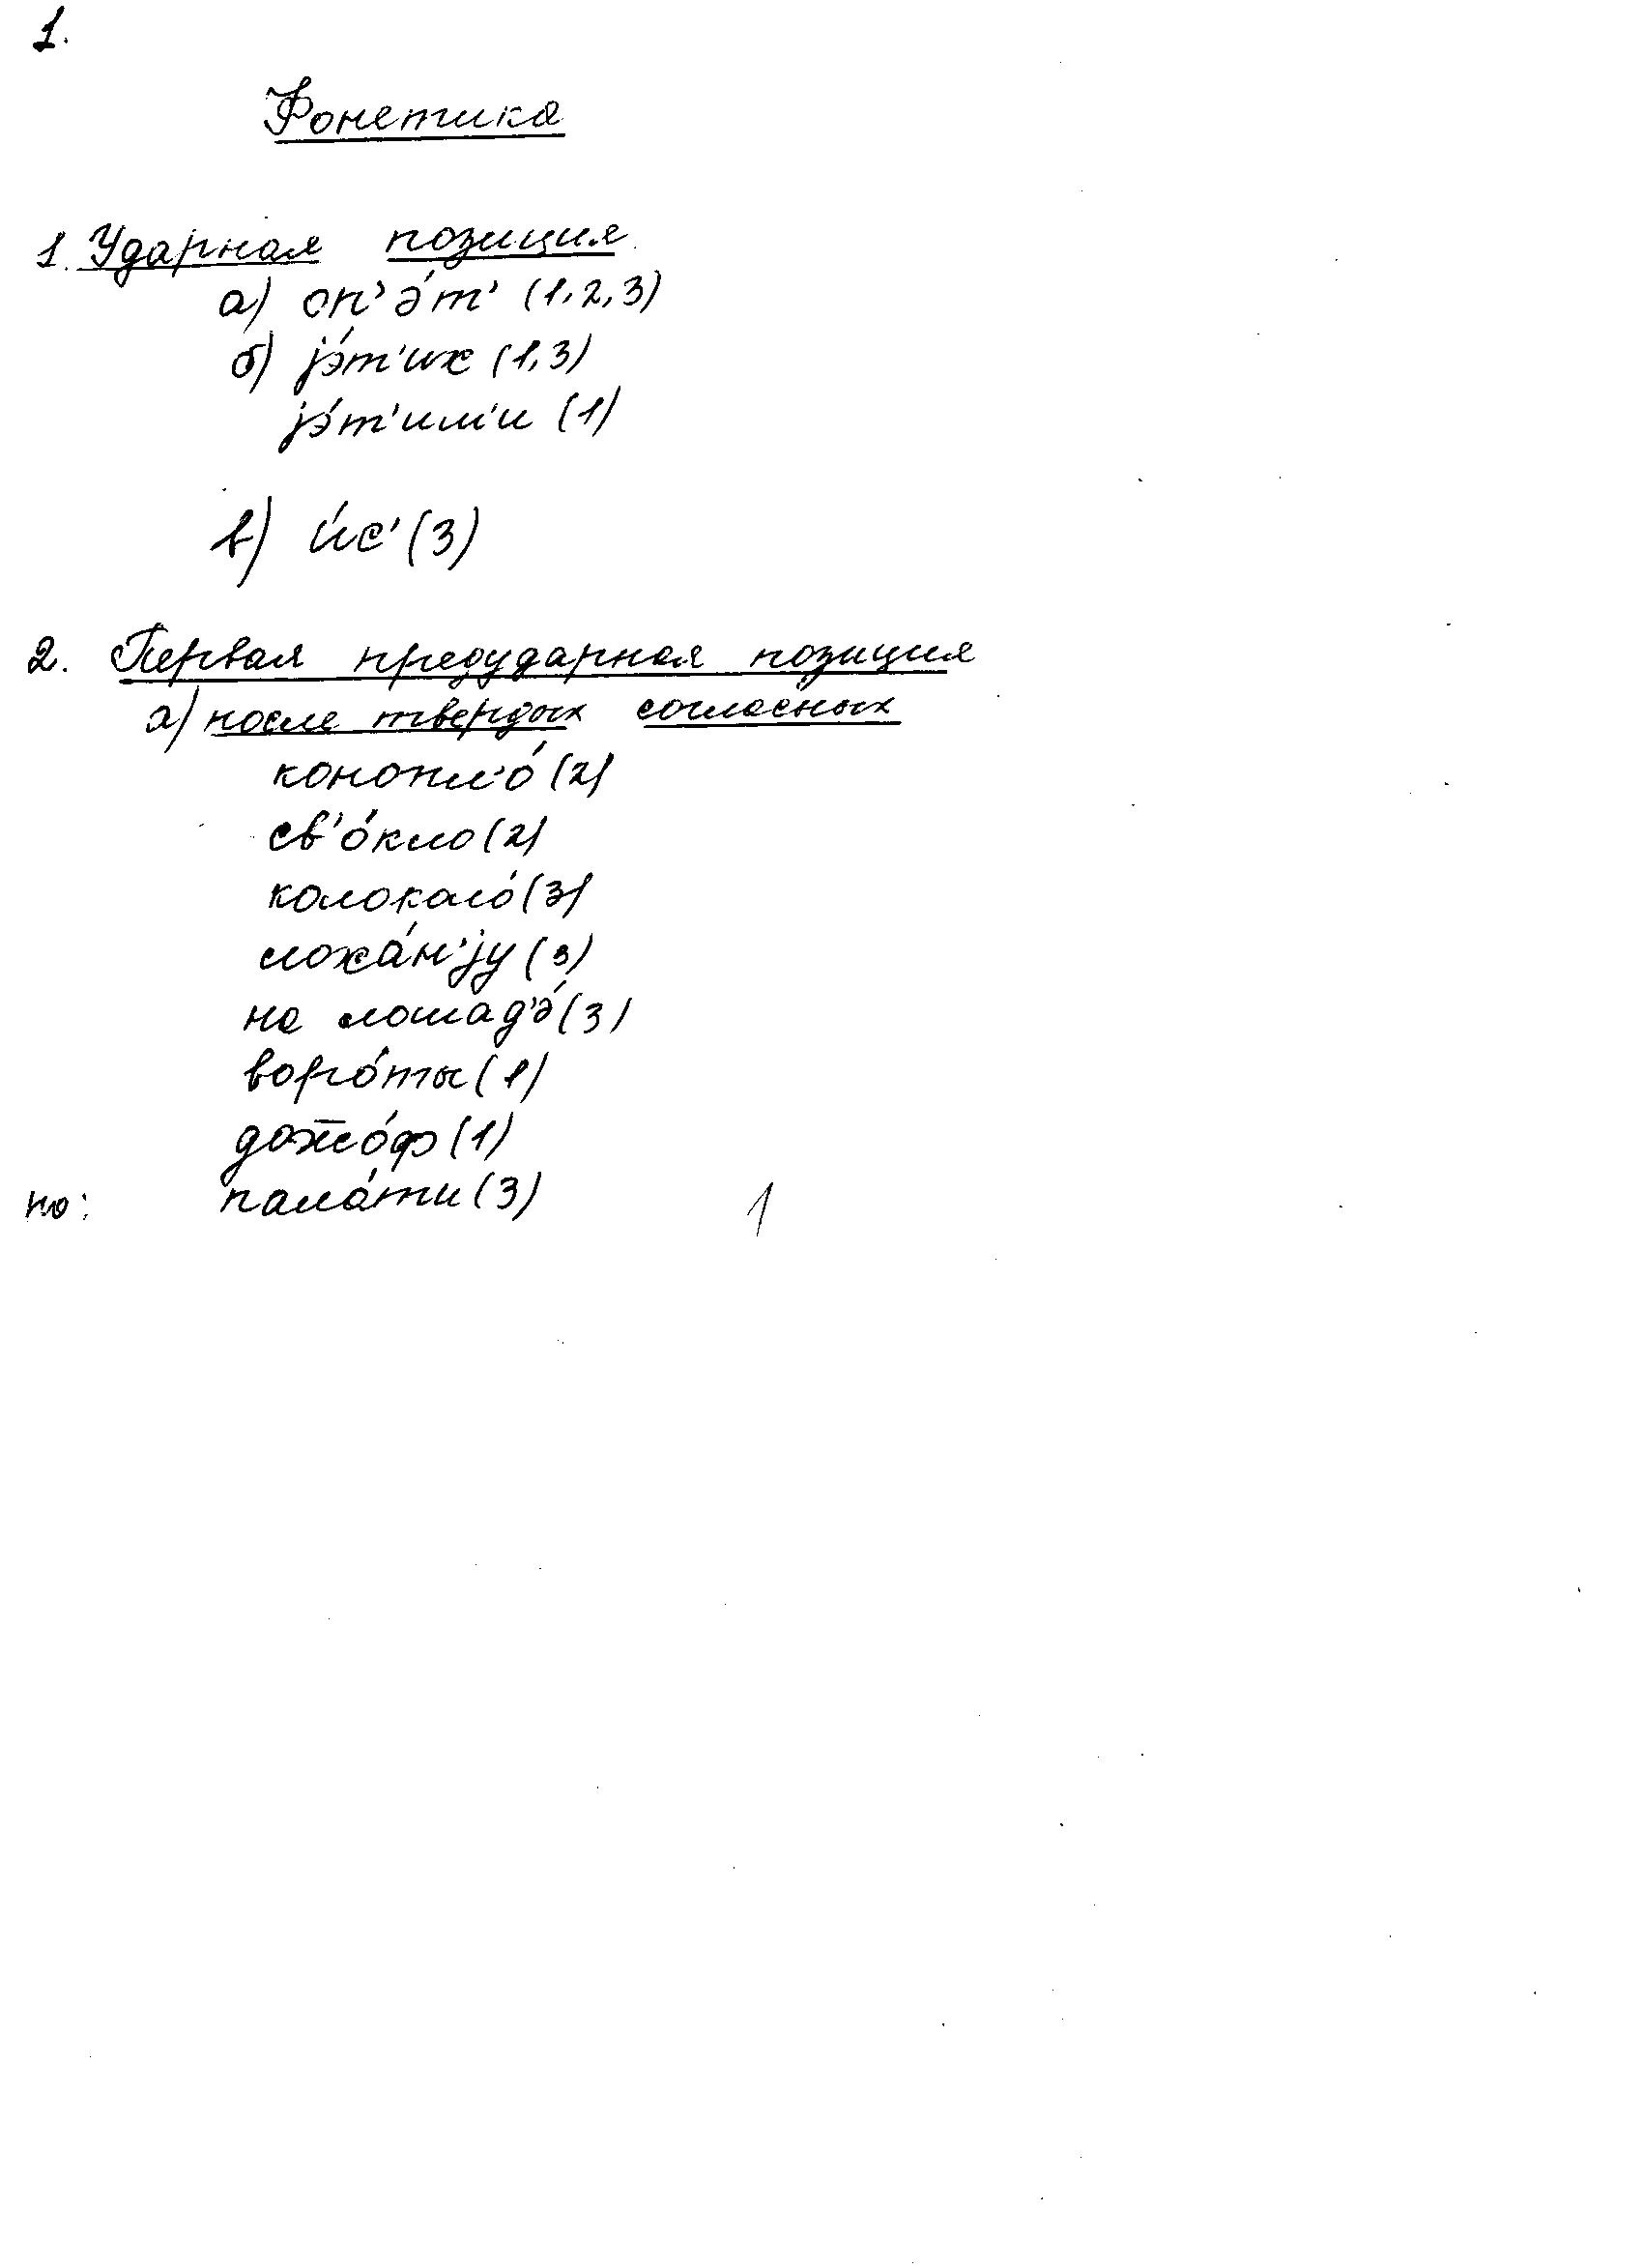 1.
Фонетика
1. Ударная позиция
а) оп’э́т’ (1,2,3)
б) jэ́т’их (1,3)
jэ́т’им’и (1)
в) и́с’ (3)
2. Первая предударная позиция
а) после твердых согласных
конопл’о́ (2)
св’о́кло (2)
колокало́ (3)
лоха́н’jу (3)
на лошад’э́ (3)
воро́ты (1)
дож̅о́ф (1)
но: пала́ти (3)
1